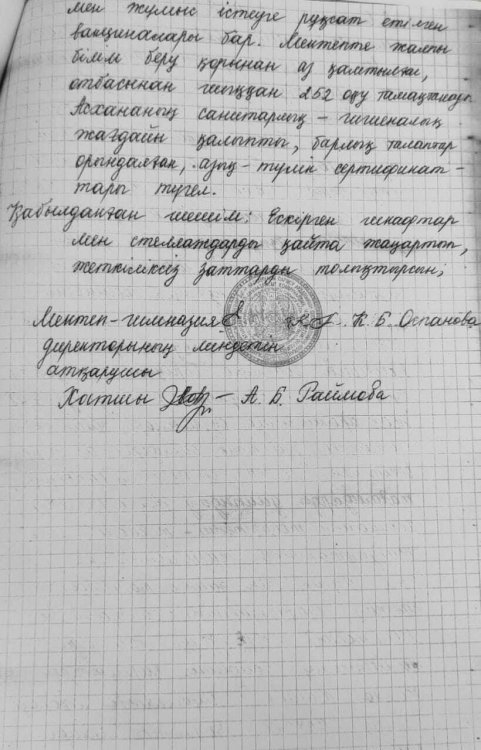 мен жұмыс істеуге рұқсат етілген
вакциналары бар. Мектепте жалпы
білім беру қорынан аз қамтылған,
отбасынан шыққан 252 оқу тамақтанады.
Асхананың санитарлық - гигиеналық
жағдайы қалыпты, барлық талаптар
орындалған, азық - түлік сертификат -
тары түгел.
Қабылданған шешім: Ескірген шкафтар
мен стеллаждарды қайта жаңартып,
жеткіліксіз заттарды толықтырсын;
Мектеп-гимназия К. Б. Оспанова
директорының міндетін
атқарушы
Хатшы А. Б. Раймова